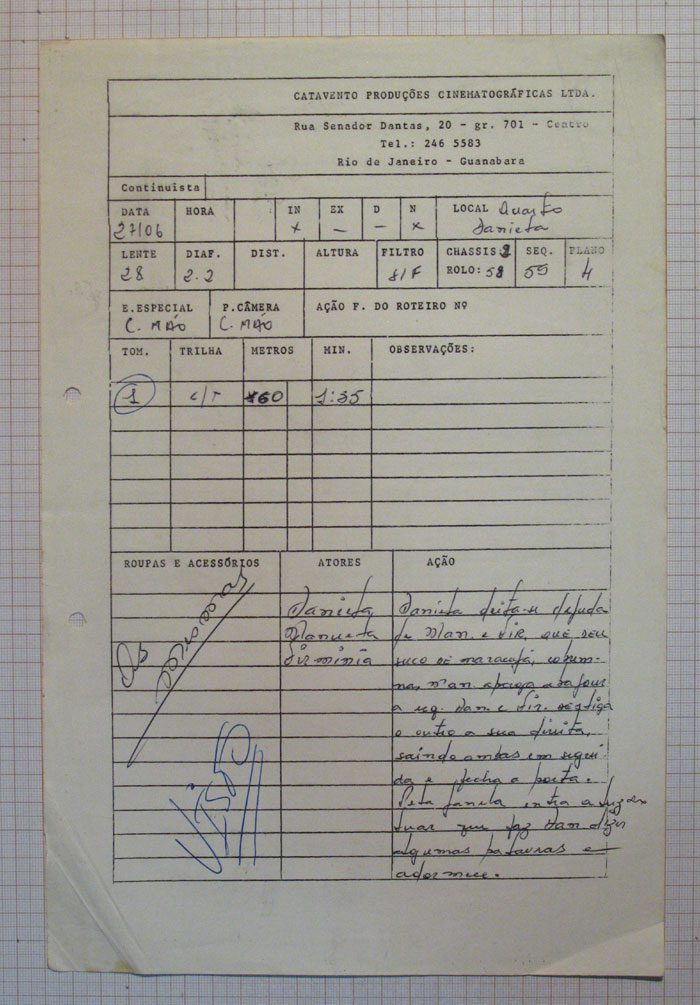 CATAVENTO PRODUÇÕES CINEMATOGRÁFICAS LTDA.
Rua Senador Dantas, 20 - gr. 701 - Centro
Tel.: 246 5583
Rio de Janeiro - Guanabara
Continuista
DATA HORA IN EX D N LOCAL Quarto
27/06 x — — x Daniela
LENTE DIAF. DIST. ALTURA FILTRO CHASSIS 2 SEQ. PLANO
28 2.2 S/F ROLO: 58 59 4
E.ESPECIAL P.CÂMERA AÇÃO F. DO ROTEIRO Nº
C. MÃO C. MÃO
TOM. TRILHA METROS MIN. OBSERVAÇÕES:
1 c/T 60 1:35
ROUPAS E ACESSÓRIOS ATORES AÇÃO
Os
Daniela Daniela deita-se
Manuela de Man. e FIR, que deu
Firminia suco de maracujá,
Man apaga abajour
a seg. Dan. e Fir.
o outro a sua direita,
saindo ambas em segui-
da e fecha a porta.
Pela janela entra a luz do
luar que faz Dan dizer
algumas palavras e
adormece.
VISTO